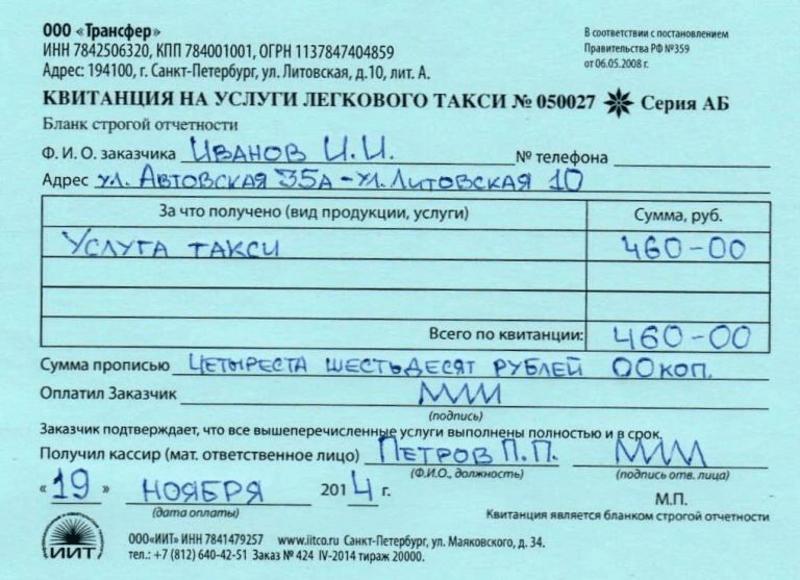 ООО «Трансфер»
ИНН 7842506320, КПП 784001001, ОГРН 1137847404859
Адрес: 194100, г. Санкт-Петербург, ул. Литовская, д.10, лит. А.
В соответствии с постановлением
Правительства РФ №359
от 06.05.2008 г.
КВИТАНЦИЯ НА УСЛУГИ ЛЕГКОВОГО ТАКСИ № 050027 Серия АБ
Бланк строгой отчетности
Ф. И. О. заказчика Иванов И.И. № телефона
Адрес ул. Автовская 35А – ул. Литовская 10
За что получено (вид продукции, услуги) Сумма, руб.
Услуга такси 460-00
Всего по квитанции: 460-00
Сумма прописью Четыреста шестьдесят рублей 00 коп.
Оплатил Заказчик
(подпись)
Заказчик подтверждает, что все вышеперечисленные услуги выполнены полностью и в срок.
Получил кассир (мат. ответственное лицо) Петров П.П.
(Ф.И.О., должность) (подпись отв. лица)
«19» ноября 2014 г. М.П.
(дата оплаты) Квитанция является бланком строгой отчетности
ИИТ
ООО«ИИТ» ИНН 7841479257 www.iitco.ru Санкт-Петербург, ул. Маяковского, д. 34.
тел.: +7 (812) 640-42-51 Заказ № 424 IV-2014 тираж 20000.